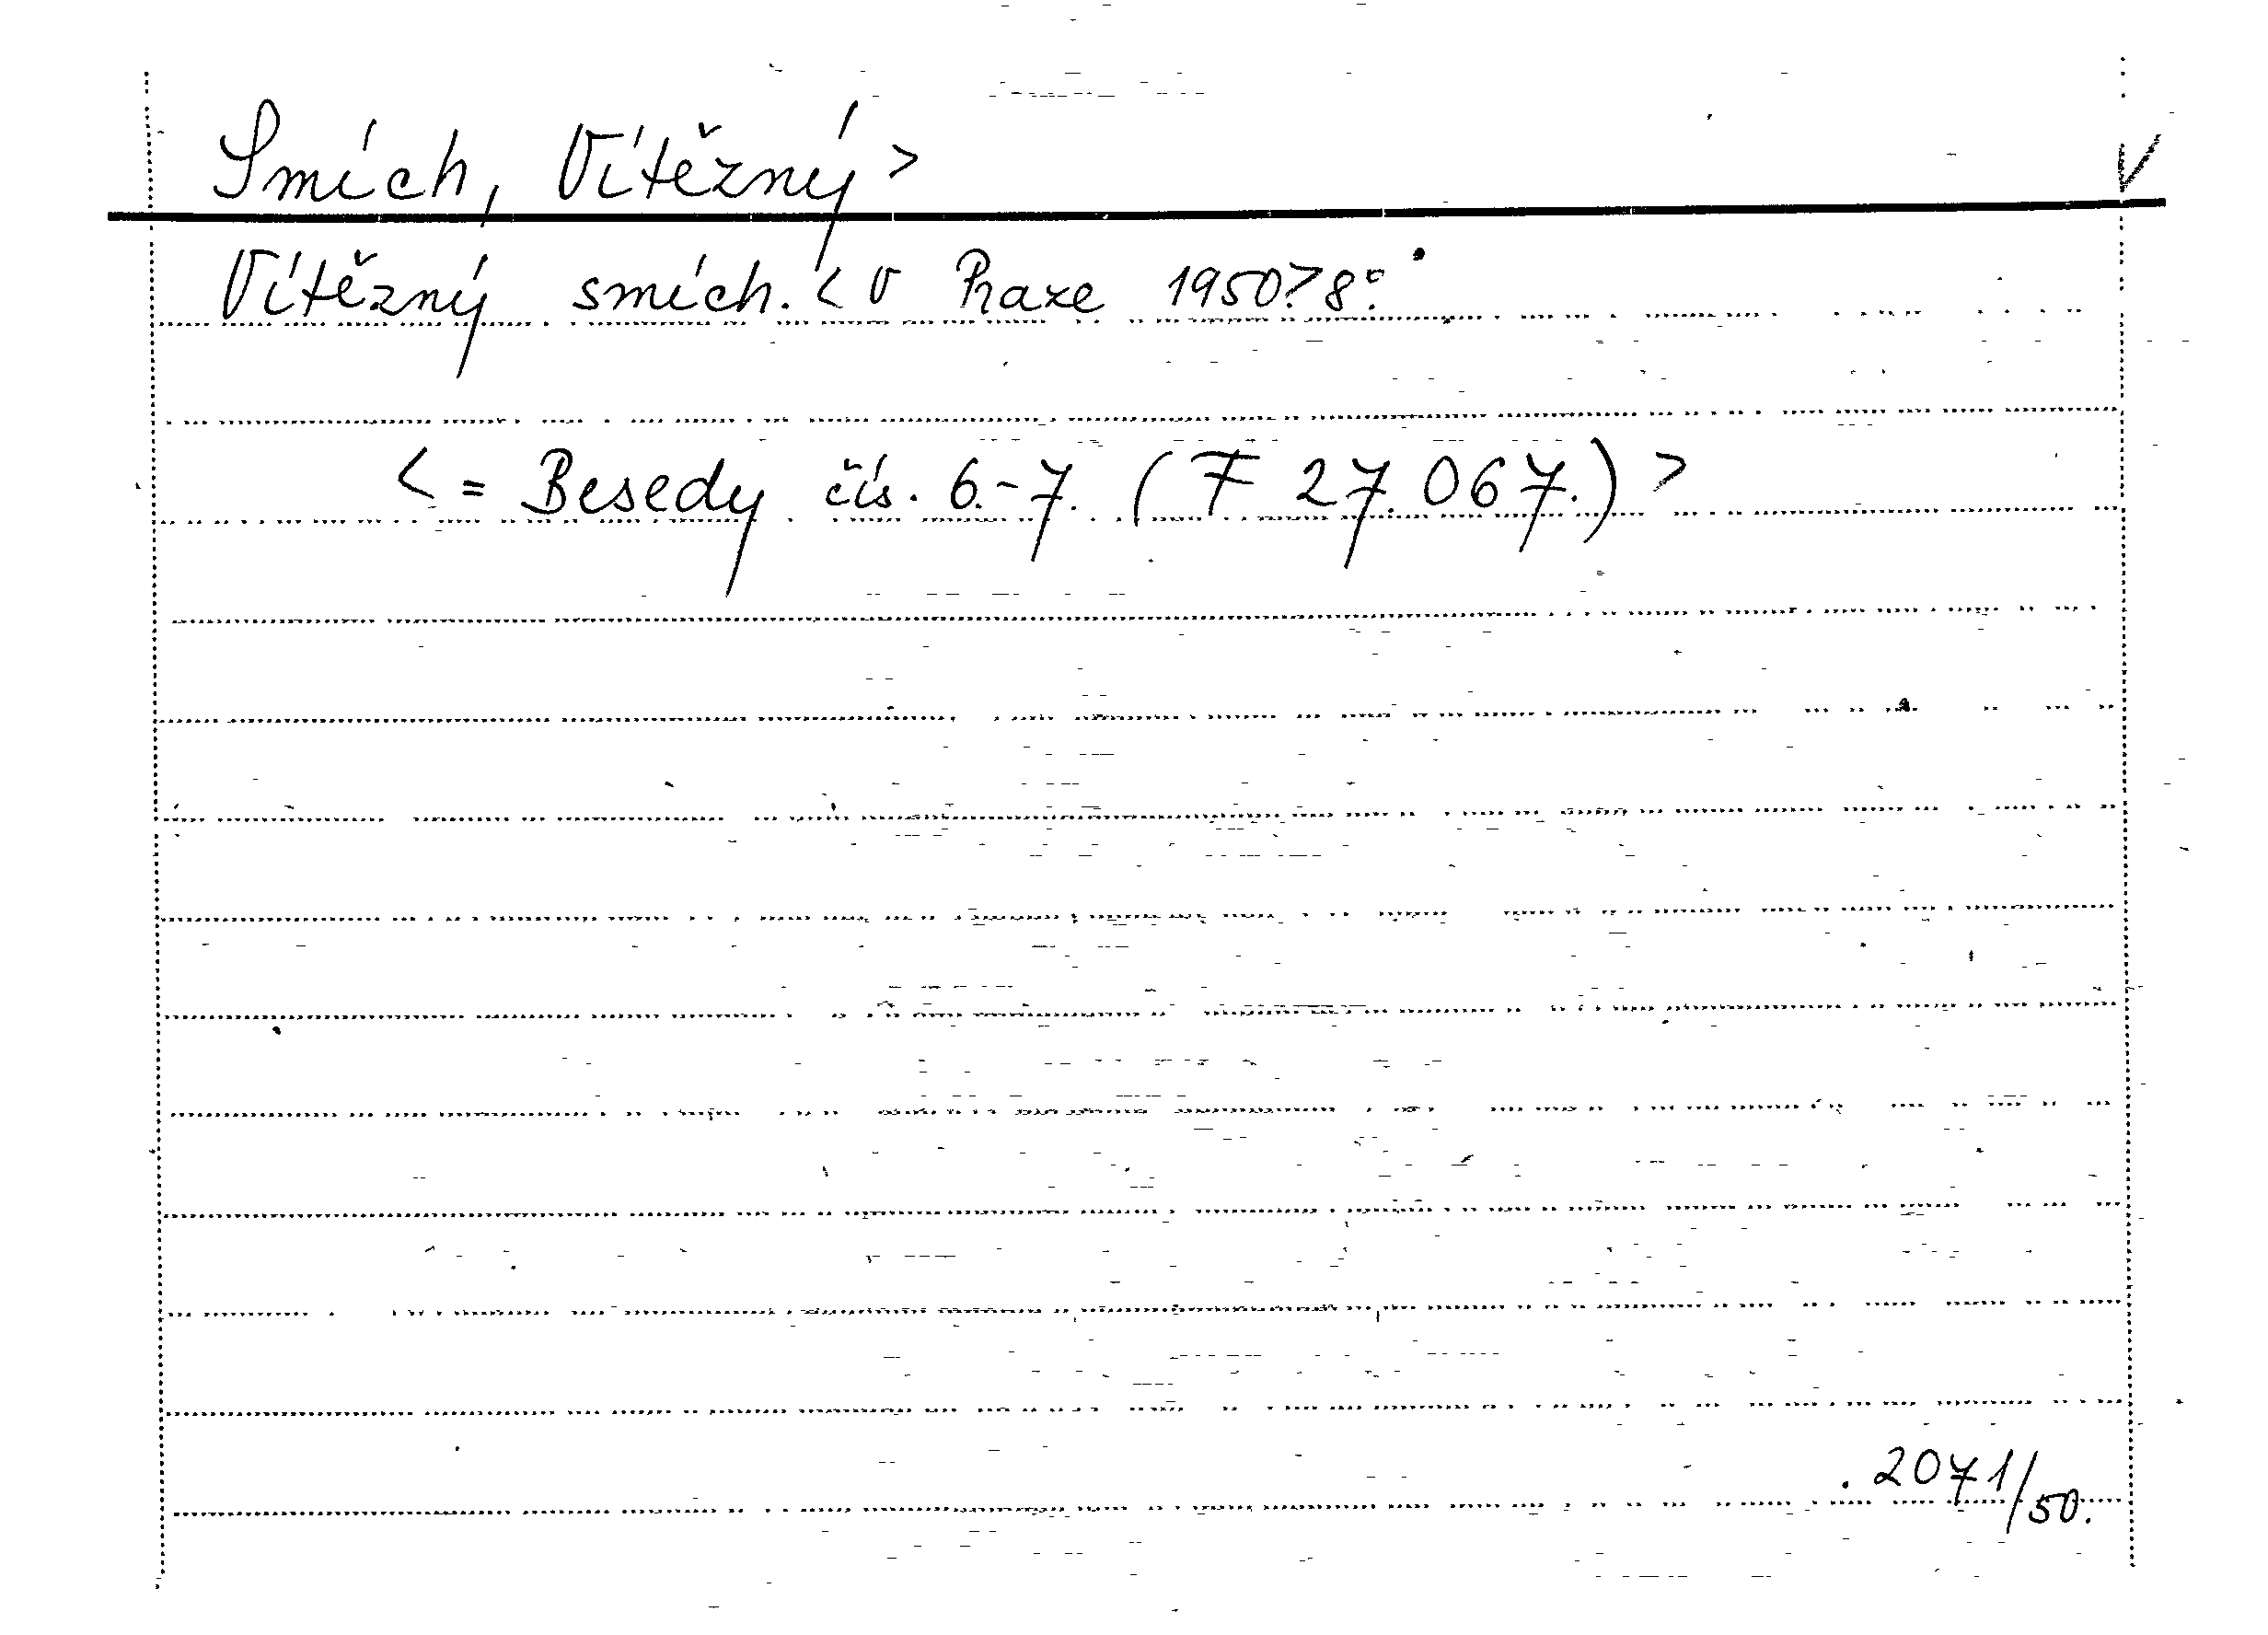 Smích, Vítězný > V
Vítězný smích. < V Praze 1950.> 8°.
< = Besedy čís. 6.-7. (F 27.067.) >
2071/50.